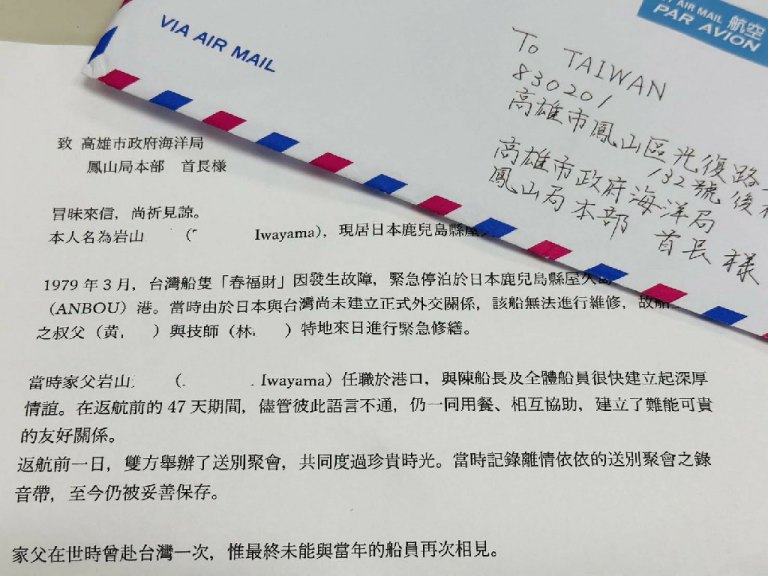 VIA AIR MAIL
AIR MAIL 航空
PAR AVION
To TAIWAN
830201
高雄市鳳山區光復路
132號後
高雄市政府海洋局
鳳山局本部 首長様
致 高雄市政府海洋局
鳳山局本部 首長様
冒昧來信，尚祈見諒。
本人名為岩山 ( Iwayama)，現居日本鹿兒島縣屋久
1979 年 3 月，台灣船隻「春福財」因發生故障，緊急停泊於日本鹿兒島縣屋久島
（ANBOU）港。當時由於日本與台灣尚未建立正式外交關係，該船無法進行維修，故船
之叔父（黃 ）與技師（林 ）特地來日進行緊急修繕。
當時家父岩山 ( Iwayama）任職於港口，與陳船長及全體船員很快建立起深厚
情誼。在返航前的 47 天期間，儘管彼此語言不通，仍一同用餐、相互協助，建立了難能可貴
的友好關係。
返航前一日，雙方舉辦了送別聚會，共同度過珍貴時光。當時記錄離情依依的送別聚會之錄
音帶，至今仍被妥善保存。
家父在世時曾赴台灣一次，惟最終未能與當年的船員再次相見。